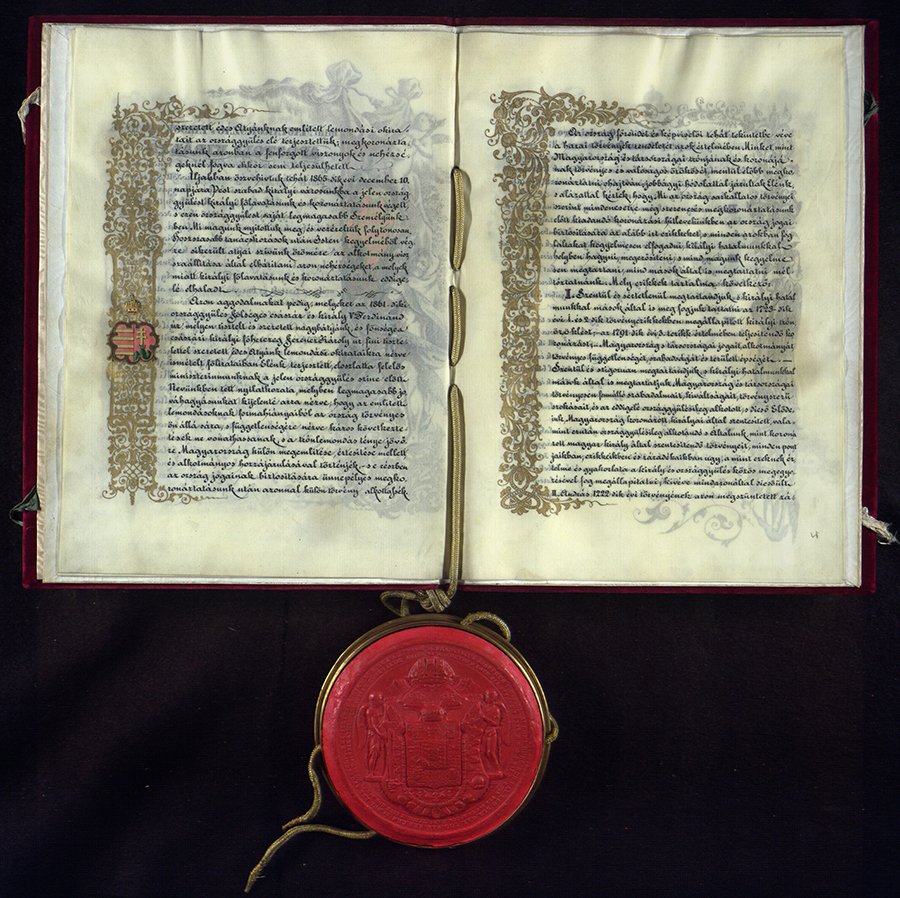 szeretett édes Atyánknak említett lemondási okira-
tait az országgyűlés elé terjesztettük; megkoronázta-
tásunk azonban a fenforgott viszonyok és nehézsé-
geknél fogva ekkor sem teljesülhetett.
Újabban öszvehivtuk tehát 1865-dik évi december 10.
napjára Pest szabad királyi városunkba a jelen ország-
gyűlést királyi fölavatásunk és koronáztatásunk végett
s ezen országgyűlést saját legmagasabb Személyünk-
ben, Mi magunk nyitottuk meg, és vezéreltük folytonosan.
Hosszasabb tanácskozások után Isten kegyelméből vég-
re sikerült atyai szívünk örömére, az alkotmány visz-
szaállítása által elhárítani azon nehézségeket, a melyek
miatt királyi fölavatásunk és koronáztatásunk eddige-
lé elhaladt.
Azon aggodalmakat pedig, melyeket az 1861. diki
országgyűlés Felséges császár és király V. Ferdinánd
úr, mélyen tisztelt és szeretett nagybátyánk, és fönséges
császári királyi főherczeg Ferencz Károly úr, fiúi tiszte-
lettel szeretett édes Atyánk lemondási okirataikra nézve
ismételt fölirataiban Elénk terjesztett, eloszlatta felelős
ministeriumunknak a jelen országgyűlés színe előtt
Nevünkben tett nyilatkozata, melyben legmagasabb jó-
váhagyásunkat kijelenté arra nézve, hogy az említett
lemondásoknak formahiányaiból az ország törvényes
önállására, s függetlenségére nézve káros következte-
tések ne vonathassanak, s a trónlemondás ténye jövő-
re Magyarország külön megemlítése, értesítése mellett
és alkotmányos hozzájárulásával történjék, - s e részben
az ország jogainak biztosítására ünnepélyes megko-
ronáztatásunk után azonnal külön törvény alkottassék
Az ország főrendei és képviselői tehát tekintetbe véve
a hazai törvények rendeletét azok értelmében Minket, mint
Magyarország és társországai trónjának és koronájá-
nak törvényes és valóságos örökösét, mentül előbb megko-
ronáztatni óhajtván, jobbágyi hódolattal járultak Elénk,
s alázattal kérték; hogy Mi az ország sarkalatos törvényei
szerint mindenesetre még szerencsés megkoronáztatásunk
előtt kiadandó koronázási hitlevelünkben az ország jogai
biztosítására az alább írt czikkeket, s minden azokban fog-
laltakat kegyelmesen elfogadni, királyi hatalmunkkal
helyben hagyni, megerősíteni, s mind magunk kegyelme-
sen megtartani, mind mások által is megtartatni mél-
tóztatnánk. Mely czikkek tartalma következő:
I. Szentül és sértetlenül megtartandjuk, s királyi hatal-
munkkal mások által is meg fogjuk tartatni az 1723-dik
évi 1. és 2. dik törvényczikkekben megállapított királyi trón-
öröklést; - az 1791. dik évi 3. tczikk értelmében teljesítendő ko-
ronázást, - Magyarország s társországai jogait, alkotmányát
törvényes függetlenségét, szabadságát és területi épségét. —
Szentül és szigorúan megtartandjuk, s királyi hatalmunkkal
mások által is megtartatjuk Magyarország és társországai
törvényesen fennálló szabadalmait, kiváltságait, törvényszerű
szokásait, és az eddigelé országgyűlésileg alkotott, s dicső Előde-
ink, Magyarország koronázott királyai által szentesített, vala-
mint ezután országgyűlésileg alkotandó s Általunk, mint koroná-
zott magyar király által szentesítendő törvényeit, minden pont-
jaikban, czikkeikben és záradékaikban úgy, a mint ezeknek ér-
telme és gyakorlata a király és országgyűlés közös megegye-
zésével fog megállapíttatni, kivéve mindazonáltal dicsőült
II. András 1222-dik évi törvényének azon megszüntetett zá-